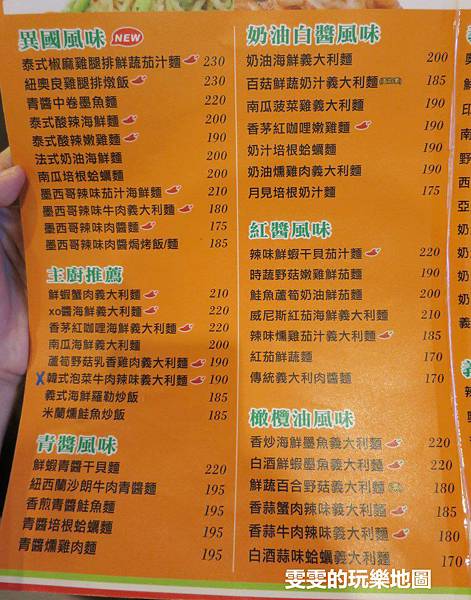 異國風味 NEW
泰式椒麻雞腿排鮮蔬茄汁麵 230
紐奧良雞腿排燉飯 230
青醬中卷墨魚麵 220
泰式酸辣海鮮麵 200
泰式酸辣嫩雞麵 190
法式奶油海鮮麵 200
南瓜培根蛤蠣麵 200
墨西哥辣味茄汁海鮮麵 210
墨西哥辣味牛肉義大利麵 180
墨西哥辣味肉醬麵 175
墨西哥辣味肉醬焗烤飯/麵 185
主廚推薦
鮮蝦蟹肉義大利麵 210
xo醬海鮮義大利麵 220
香茅紅咖哩海鮮義大利麵 220
南瓜海鮮義大利麵 200
蘆筍野菇乳香雞肉義大利麵 190
韓式泡菜牛肉辣味義大利麵 190
義式海鮮羅勒炒飯 185
米蘭燻鮭魚炒飯 185
青醬風味
鮮蝦青醬干貝麵 220
紐西蘭沙朗牛肉青醬麵 195
香煎青醬鮭魚麵 195
青醬培根蛤蠣麵 195
青醬燻雞肉麵 195
奶油白醬風味
奶油海鮮義大利麵 200
百菇鮮蔬奶汁義大利麵 185
南瓜菠菜雞義大利麵 190
香茅紅咖哩嫩雞麵 190
奶汁培根蛤蠣麵 190
奶油燻雞肉義大利麵 190
月見培根奶汁麵 175
紅醬風味
辣味鮮蝦干貝茄汁麵 220
時蔬野菇嫩雞鮮茄麵 190
鮭魚蘆筍奶油鮮茄麵 200
威尼斯紅茄海鮮義大利麵 210
辣味燻雞茄汁義大利麵 185
紅茄鮮蔬麵 170
傳統義大利肉醬麵 170
橄欖油風味
香炒海鮮墨魚義大利麵 220
白酒鮮蝦墨魚義大利麵 220
鮮蔬百合野菇義大利麵 180
香蒜蟹肉辣味義大利麵 185
香蒜牛肉辣味義大利麵 180
白酒蒜味蛤蠣義大利麵 170
雯雯的玩樂地圖